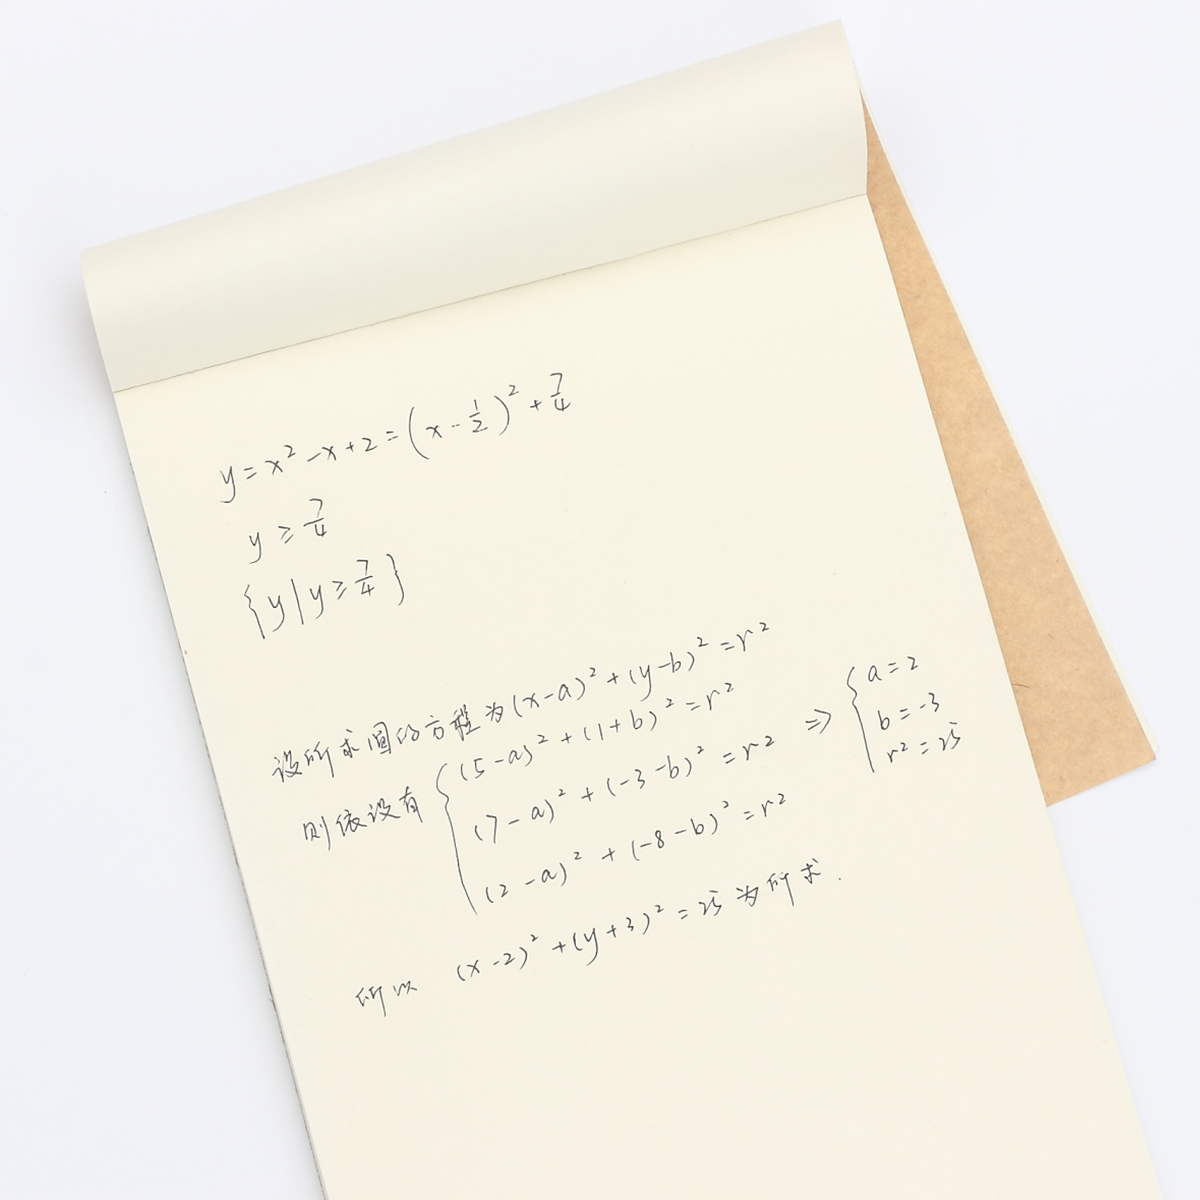 y=x²-x+2=(x-1/2)²+7/4
y≥7/4
{y|y≥7/4}
设所求圆的方程为(x-a)²+(y-b)²=r²
则依设有 { (5-a)²+(1+b)²=r² ⇒ { a=2
(7-a)²+(-3-b)²=r² b=-3
(2-a)²+(-8-b)²=r² r²=25
所以 (x-2)²+(y+3)²=25为所求.